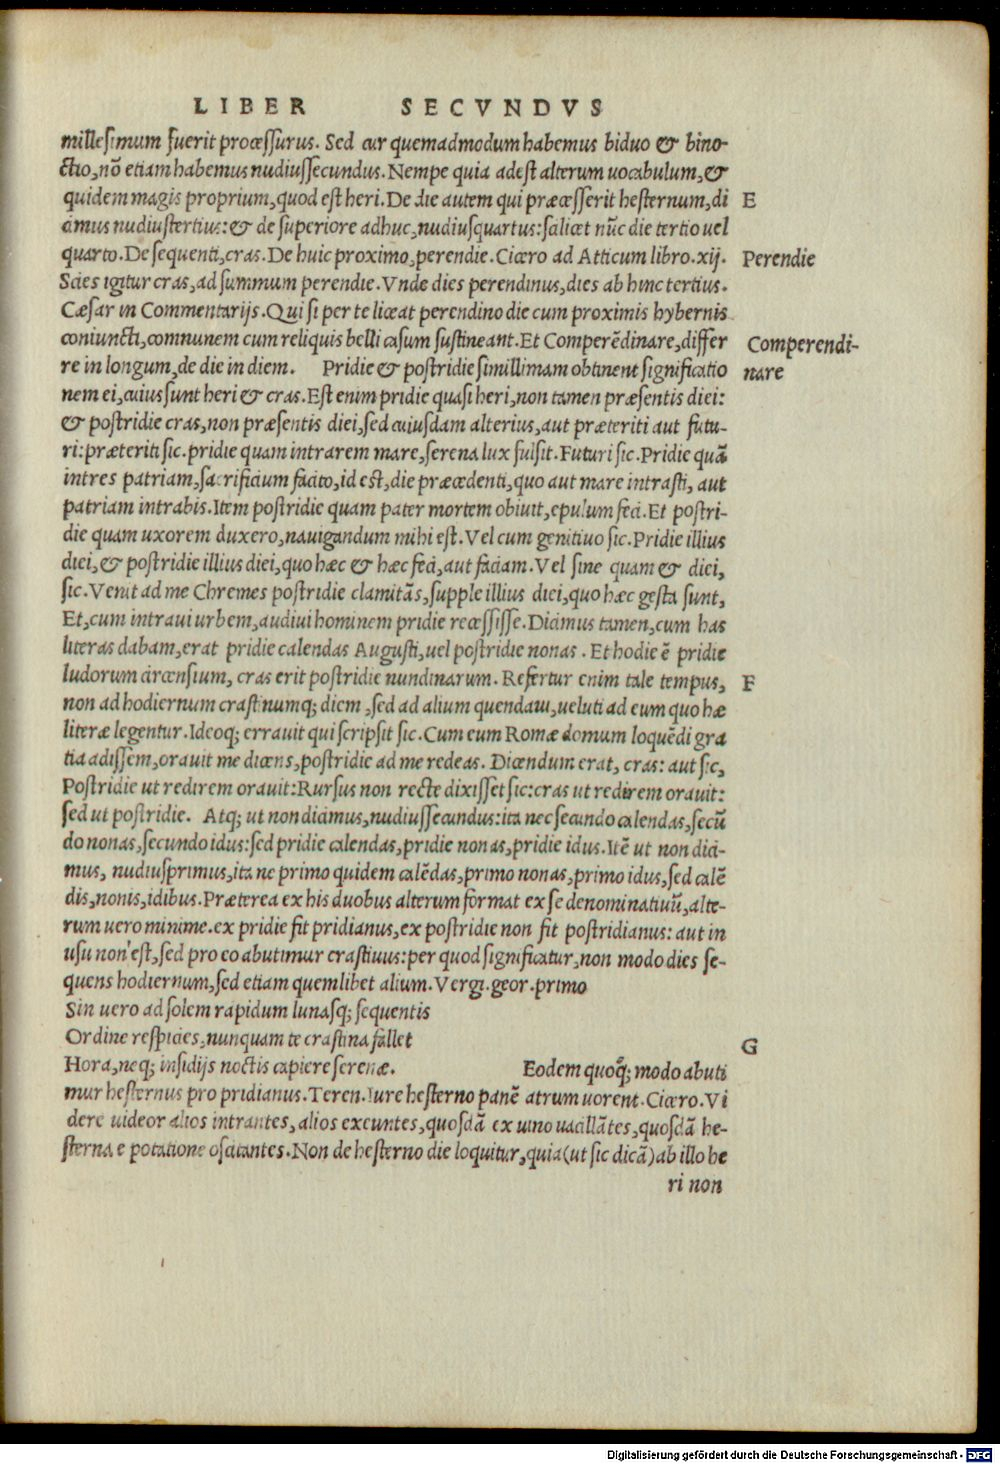 LIBER SECVNDVS
millesimum fuerit processurus. Sed cur quemadmodum habemus biduo & bino-
ctio, nõ etiam habemus nudiussecundus. Nempe quia adest alterum uocabulum, &
quidem magis proprium, quod est heri. De die autem qui præcesserit hesternum, di
E
cimus nudiustertius: & de superiore adhuc, nudiusquartus: scilicet nũc die tertio uel
quarto. De sequenti, cras. De huic proximo, perendie. Cicero ad Atticum libro. xij.
Perendie
Scies igitur cras, ad summum perendie. Vnde dies perendinus, dies ab hinc tertius.
Cæsar in Commentarijs. Qui si per te liceat perendino die cum proximis hybernis
coniuncti, communem cum reliquis belli casum sustineant. Et Comperẽdinare, differ
Comperendi-
re in longum, de die in diem. Pridie & postridie simillimam obtinent significatio
nare
nem ei, cuius sunt heri & cras. Est enim pridie quasi heri, non tamen præsentis diei:
& postridie cras, non præsentis diei, sed cuiusdam alterius, aut præteriti aut futu-
ri: præteriti sic. pridie quam intrarem mare, serena lux fulsit. Futuri sic. Pridie quã
intres patriam, sacrificium facito, id est, die præcedenti, quo aut mare intrasti, aut
patriam intrabis. Item postridie quam pater mortem obiuit, epulum feci. Et postri-
die quam uxorem duxero, nauigandum mihi est. Vel cum genitiuo sic. Pridie illius
diei, & postridie illius diei, quo hæc & hæc feci, aut faciam. Vel sine quam & diei,
sic. Venit ad me Chremes postridie clamitãs, supple illius diei, quo hæc gesta sunt,
Et, cum intraui urbem, audiui hominem pridie recessisse. Dicimus tamen, cum has
literas dabam, erat pridie calendas Augusti, uel postridie nonas. Et hodie ẽ pridie
ludorum circensium, cras erit postridie nundinarum. Refertur enim tale tempus,
F
non ad hodiernum crastinumq; diem, sed ad alium quendam, ueluti ad eum quo hæ
literæ legentur. Ideoq; errauit qui scripsit sic. Cum eum Romæ domum loquẽdi gra
tia adissem, orauit me dicens, postridie ad me redeas. Dicendum erat, cras: aut sic,
Postridie ut redirem orauit: Rursus non recte dixisset sic: cras ut redirem orauit:
sed ut postridie. Atq; ut non dicimus, nudiussecundus: ita nec secundo calendas, secũ
do nonas, secundo idus: sed pridie calendas, pridie nonas, pridie idus. Itẽ ut non dici-
mus, nudiusprimus, ita ne primo quidem calẽdas, primo nonas, primo idus, sed calẽ
dis, nonis, idibus. Præterea ex his duobus alterum format ex se denominatiuũ, alte-
rum uero minime. ex pridie fit pridianus, ex postridie non fit postridianus: aut in
usu non est, sed pro eo abutimur crastinus: per quod significatur, non modo dies se-
quens hodiernum, sed etiam quemlibet alium. Vergi. geor. primo
Sin uero ad solem rapidum lunasq; sequentis
Ordine respicies, nunquam te crastina fallet
G
Hora, neq; insidijs noctis capiere serenæ. Eodem quoq̃; modo abuti
mur hesternus pro pridianus. Teren. Iure hesterno panẽ atrum uorent. Cicero. Vi
dere uideor alios intrantes, alios exeuntes, quosdã ex uino uacillãtes, quosdã he-
sterna e potatione oscitantes. Non de hesterno die loquitur, quia (ut sic dicã) ab illo he
ri non
Digitalisierung gefördert durch die Deutsche Forschungsgemeinschaft - DFG